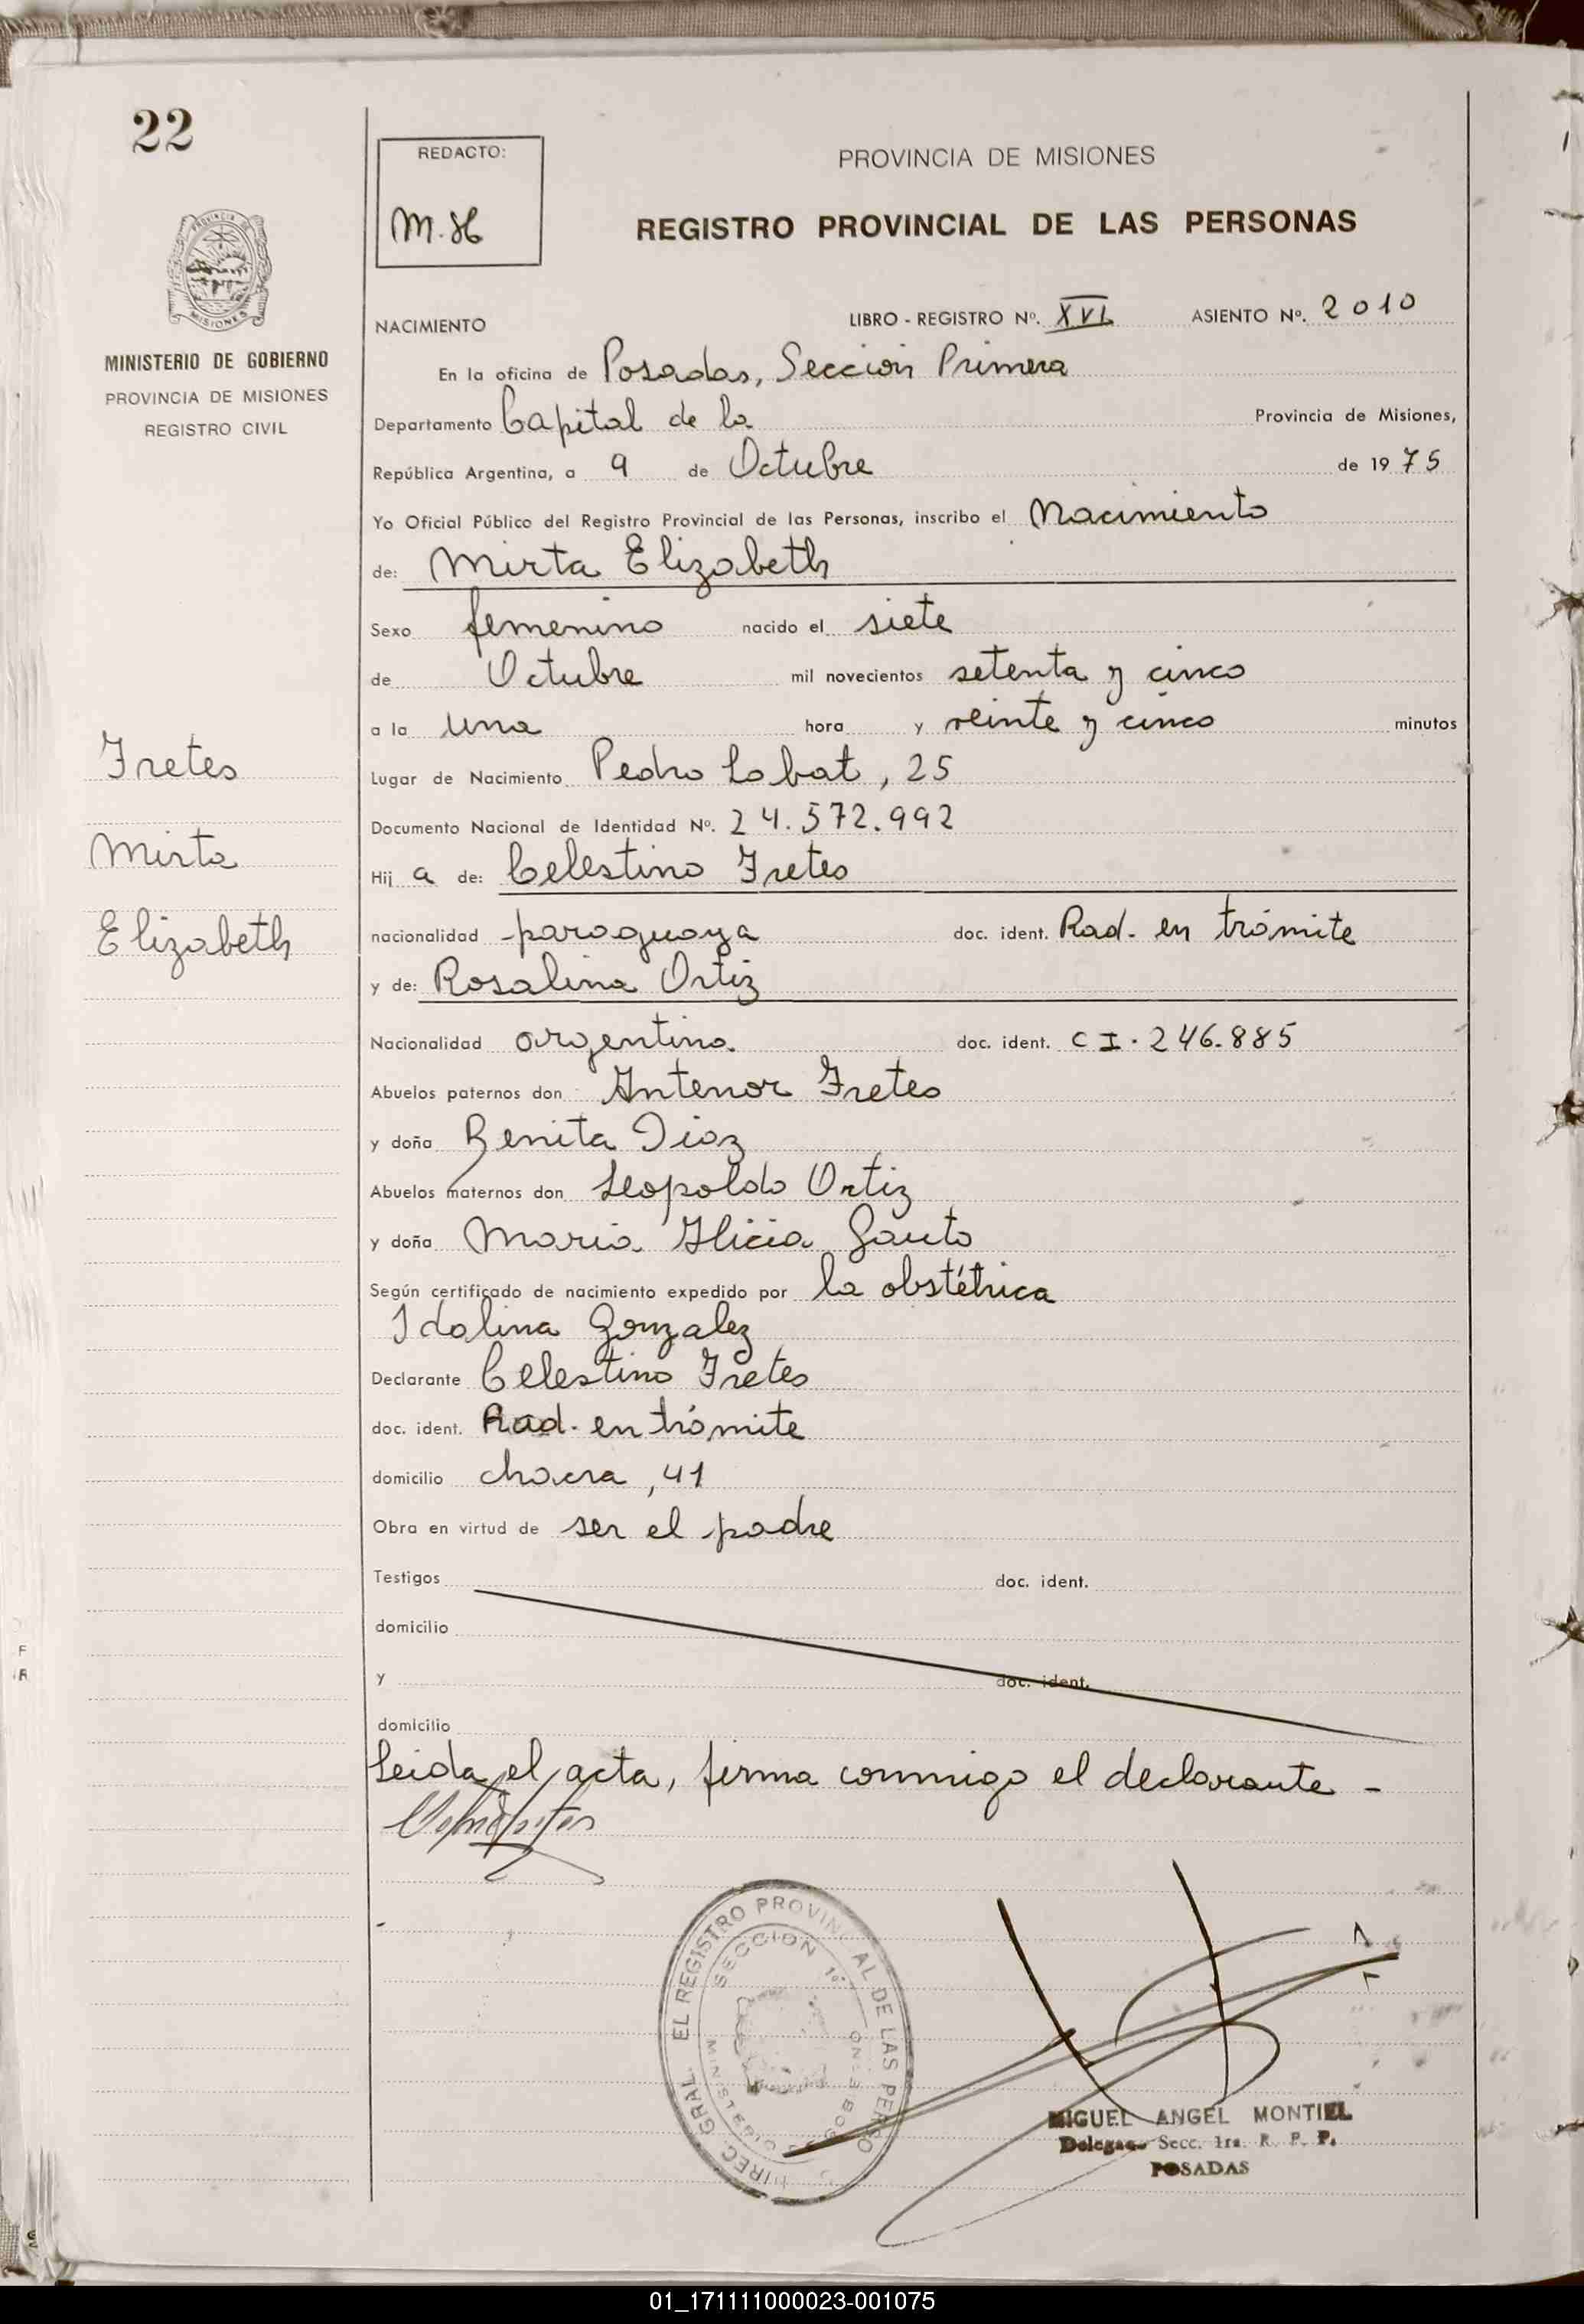 22
REDACTO:
M.H
PROVINCIA DE MISIONES
REGISTRO PROVINCIAL DE LAS PERSONAS
PROVINCIA MISIONES
MINISTERIO DE GOBIERNO
PROVINCIA DE MISIONES
REGISTRO CIVIL
NACIMIENTO LIBRO - REGISTRO Nº. XVI ASIENTO Nº. 2010
En la oficina de Posadas, Sección Primera
Departamento Capital de la Provincia de Misiones,
República Argentina, a 9 de Octubre de 1975
Yo Oficial Público del Registro Provincial de las Personas, inscribo el Nacimiento
de: Mirta Elizabeth
Sexo femenino nacido el siete
de Octubre mil novecientos setenta y cinco
a la una hora y veinte y cinco minutos
Fretes
Mirta
Elizabeth
Lugar de Nacimiento Pedro Lobat, 25
Documento Nacional de Identidad Nº. 24.572.992
Hij a de: Celestino Fretes
nacionalidad paraguaya doc. ident. Rad. en trámite
y de: Rosalina Ortiz
Nacionalidad argentina doc. ident. CI. 246.885
Abuelos paternos don Antenor Fretes
y doña Benita Diaz
Abuelos maternos don Leopoldo Ortiz
y doña Maria Alicia Gauto
Según certificado de nacimiento expedido por la obstétrica
Idalina Gonzalez
Declarante Celestino Fretes
doc. ident. Rad. en trámite
domicilio chacra, 41
Obra en virtud de ser el padre
Testigos doc. ident.
domicilio
y doc. ident.
domicilio
Leida el acta, firma conmigo el declarante -
DIREC. GRAL. EL REGISTRO PROVINCIAL DE LAS PERSO
SECCION 1ª
MINISTERIO DE GOBIERNO
MIGUEL ANGEL MONTIEL
Delegado Secc. 1ra. R. P. P.
POSADAS
01_171111000023-001075